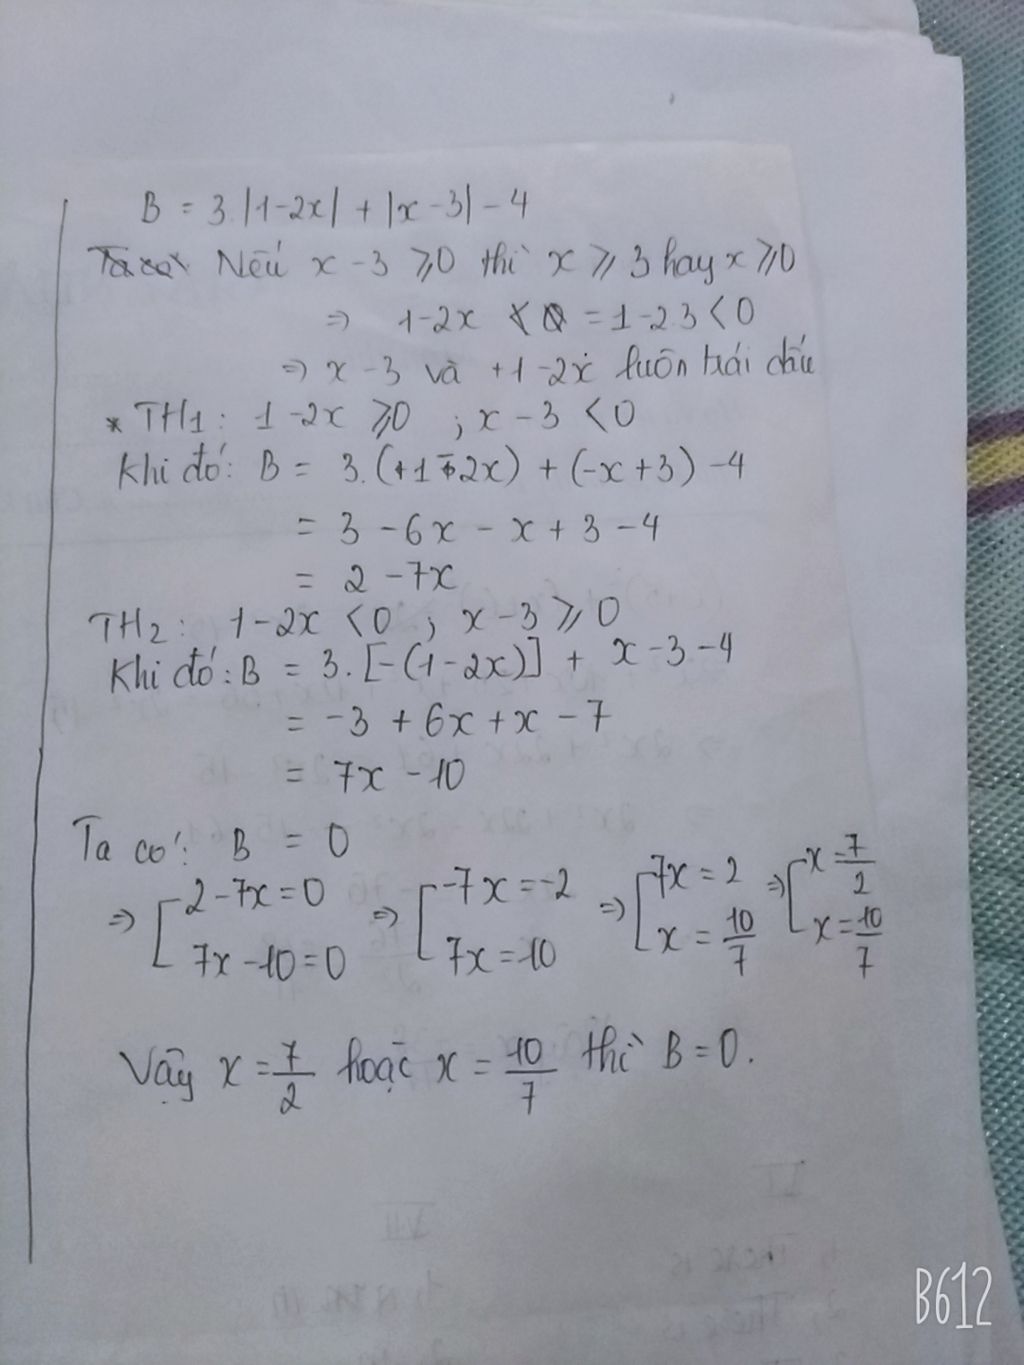 B = 3.|1-2x| + |x-3| - 4
Nếu x - 3 ⩾ 0 thì x ⩾ 3 hay x ⩾ 0
⇒ 1-2x = 1-2.3 < 0
⇒ x - 3 và +1 - 2x luôn trái dấu
* TH1: 1 - 2x ⩾ 0 ; x - 3 < 0
Khi đó: B = 3.(+1 - 2x) + (-x+3) - 4
= 3 - 6x - x + 3 - 4
= 2 - 7x
TH2: 1 - 2x < 0 ; x - 3 ⩾ 0
Khi đó: B = 3.[-(1-2x)] + x - 3 - 4
= -3 + 6x + x - 7
= 7x - 10
Ta có: B = 0
⇒ [2-7x=0 ⇒ [-7x=-2 ⇒ [7x=2 ⇒ [x=7/2
7x-10=0 7x=10 x=10/7 x=10/7
Vậy x = 7/2 hoặc x = 10/7 thì B = 0.
B612